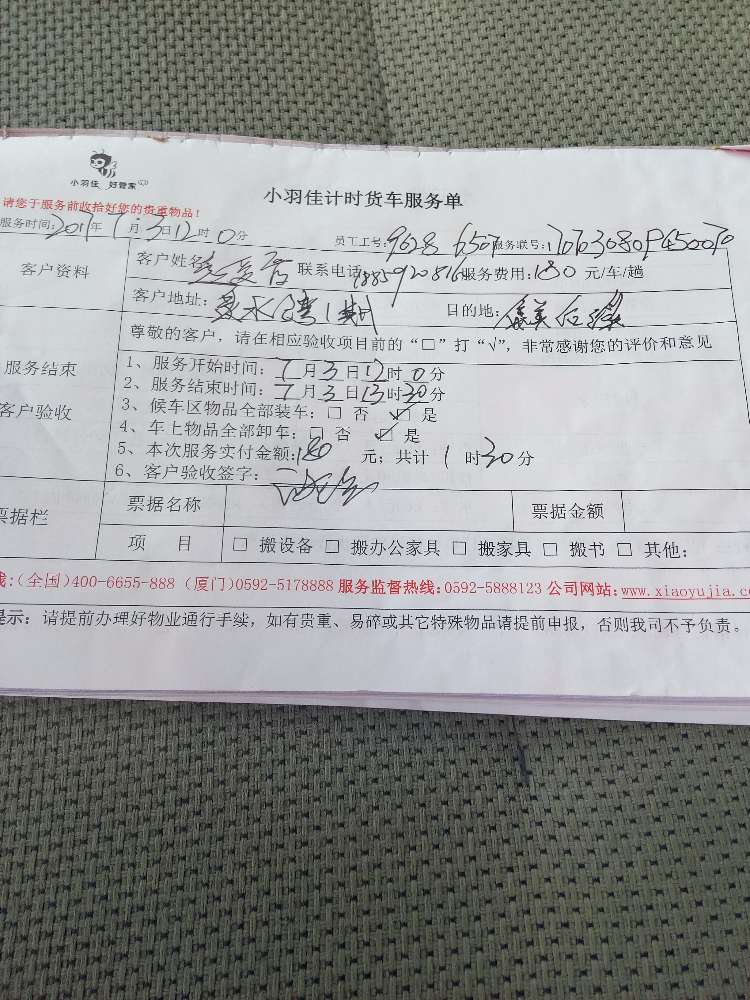 小羽佳 好管家
小羽佳计时货车服务单
请您于服务前收拾好您的贵重物品!
服务时间: 2017年7月3日12时0分 员工工号: 9628 6507 服务联号:
客户资料 客户姓名 联系电话: 服务费用:180 元/车/趟
客户地址: 目的地:
服务结束
客户验收
尊敬的客户,请在相应验收项目前的“□”打“√”,非常感谢您的评价和意见
1、服务开始时间: 7月3日12时0分
2、服务结束时间: 7月3日13时30分
3、候车区物品全部装车: □ 否 ☑ 是
4、车上物品全部卸车: □ 否 ☑ 是
5、本次服务实付金额:180 元; 共计 1 时30分
6、客户验收签字:
票据栏 票据名称 票据金额
项 目 □ 搬设备 □ 搬办公家具 □ 搬家具 □ 搬书 □ 其他:
线:(全国)400-6655-888 (厦门)0592-5178888 服务监督热线:0592-5888123 公司网站:www.xiaoyujia.co
提示: 请提前办理好物业通行手续,如有贵重、易碎或其它特殊物品请提前申报,否则我司不予负责。